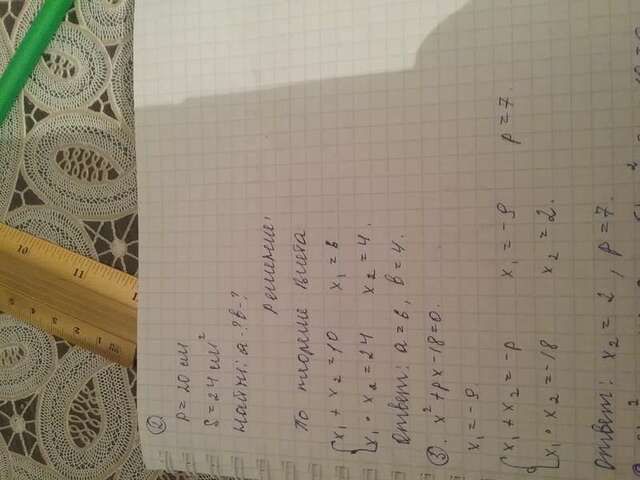 ②
P = 20 см
S = 24 см²
Найти: a-? b-?
Решение:
По теореме Виета
{ x₁ + x₂ = 10   x₁ = 6
{ x₁ · x₂ = 24   x₂ = 4.
Ответ: a = 6, b = 4.
③. x² + px - 18 = 0.
x₁ = -9.
{ x₁ + x₂ = -p   x₁ = -9   p = 7.
{ x₁ · x₂ = -18   x₂ = 2.
Ответ: x₂ = 2, p = 7.
10
11